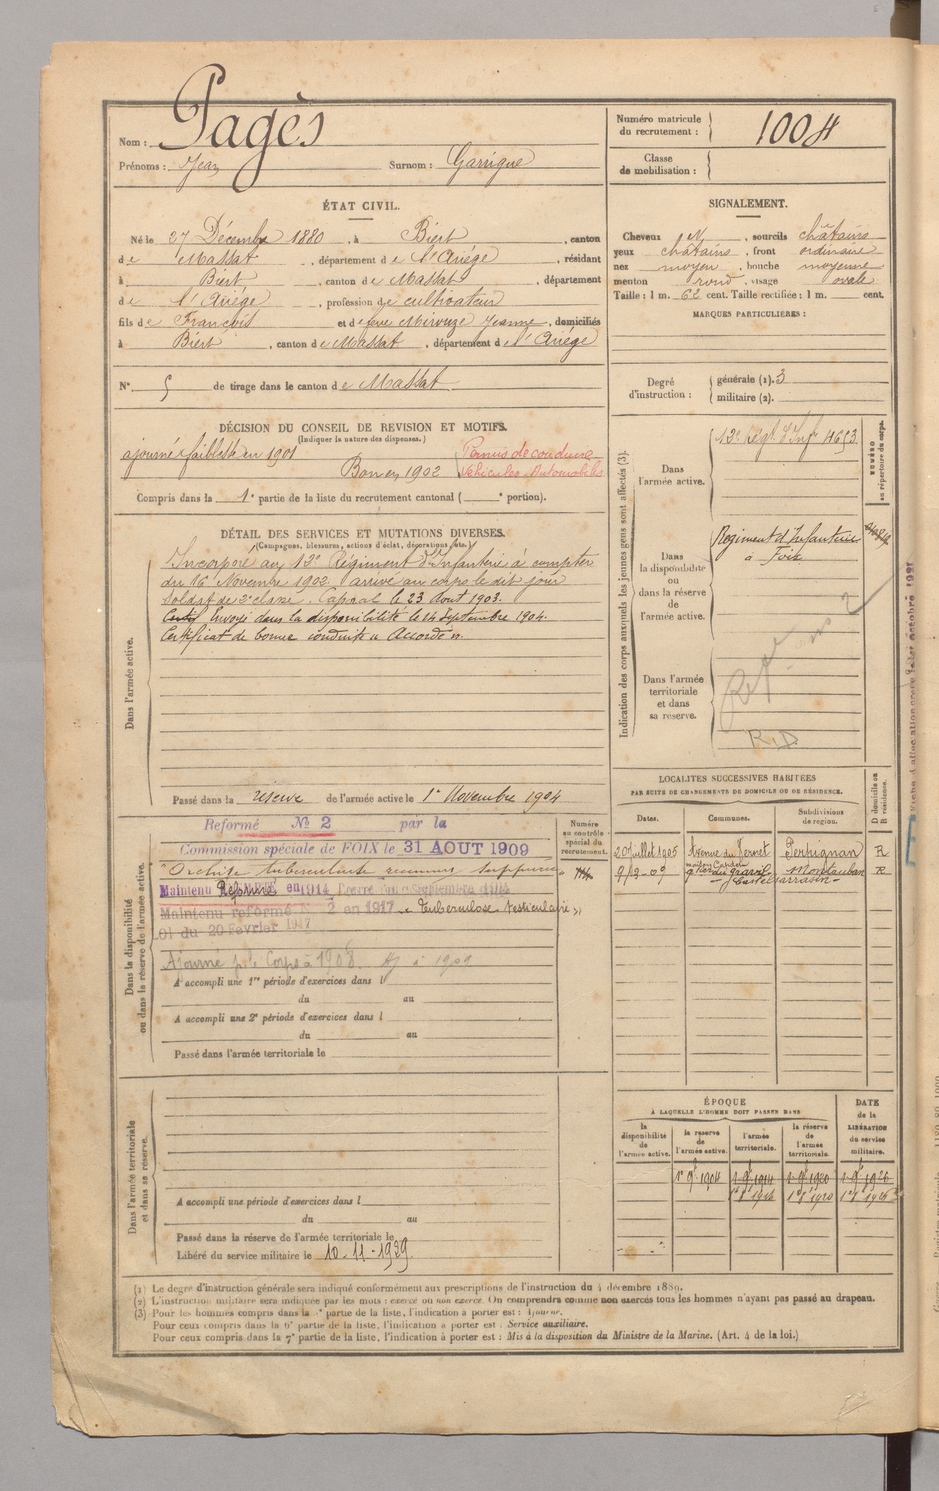 Nom : Pagès
Prénoms : Jean Surnom : Garrigue
Numéro matricule du recrutement : 1004
Classe de mobilisation :
ÉTAT CIVIL.
Né le 27 Décembre 1880, à Biert, canton
de Massat, département de l'Ariège, résidant
à Biert, canton de Massat, département
de l'Ariège, profession de cultivateur
fils de François et de feue Mirouze Jeanne, domiciliés
à Biert, canton de Massat, département de l'Ariège
N° 5 de tirage dans le canton de Massat
SIGNALEMENT.
Cheveux et, sourcils châtains
yeux châtains, front ordinaire
nez moyen, bouche moyenne
menton rond, visage ovale
Taille : 1 m. 62 cent. Taille rectifiée : 1 m. cent.
MARQUES PARTICULIÈRES :
Degré d'instruction : générale (1). 3
militaire (2).
DÉCISION DU CONSEIL DE REVISION ET MOTIFS.
(Indiquer la nature des dispenses.)
ajourné faiblesse en 1901
Bon en 1902
Permis de conduire
Véhicules Automobiles
Compris dans la 1e partie de la liste du recrutement cantonal ( e portion).
DÉTAIL DES SERVICES ET MUTATIONS DIVERSES.
(Campagnes, blessures, actions d'éclat, décorations, etc.)
Dans l'armée active.
Incorporé au 12e Régiment d'Infanterie à compter
du 16 Novembre 1902. arrivé au corps le dit jour
Soldat de 2e classe. Caporal le 23 Aout 1903.
Envoyé dans la disponibilité le 14 Septembre 1904.
Certificat de bonne conduite "Accordé".
Passé dans la réserve de l'armée active le 1er Novembre 1904
Indication des corps auxquels les jeunes gens sont affectés (3).
NUMÉRO au répertoire du corps.
Dans l'armée active.
12e régt d'Inf 4653
Dans la disponibilité ou dans la réserve de l'armée active.
Régiment d'Infanterie
à Foix
Dans l'armée territoriale et dans sa réserve.
R.D.
Dans la disponibilité ou dans la réserve de l'armée active.
Numéro au contrôle spécial du recrutement.
Reformé N° 2 par la
Commission spéciale de FOIX le 31 AOUT 1909
"Orchite tuberculeuse
Maintenu Réformé en 1914
Maintenu réformé N° 2 en 1917 "Tuberculose testiculaire"
Loi du 20 Février 1917
Ajourné p. le Corps à 1908. Aj à 1909
A accompli une 1re période d'exercices dans l
du au
A accompli une 2e période d'exercices dans l
du au
Passé dans l'armée territoriale le
LOCALITÉS SUCCESSIVES HABITÉES
PAR SUITE DE CHANGEMENTS DE DOMICILE OU DE RÉSIDENCE.
Dates. Communes. Subdivisions de région. D domicile ou R résidence.
20 juillet 1905 Avenue du Vernet Perpignan R
9/2-09 Castelsarrasin Montauban R
Dans l'armée territoriale et dans sa réserve.
A accompli une période d'exercices dans l
du au
Passé dans la réserve de l'armée territoriale le
Libéré du service militaire le 10-11-1929
ÉPOQUE
À LAQUELLE L'HOMME DOIT PASSER DANS
DATE de la LIBÉRATION du service militaire.
la disponibilité de l'armée active. la réserve de l'armée active. l'armée territoriale. la réserve de l'armée territoriale.
1er 9bre 1904 1er 9bre 1914 1er 9bre 1920 1er 9bre 1926
(1) Le degré d'instruction générale sera indiqué conformément aux prescriptions de l'instruction du 4 décembre 1889.
(2) L'instruction militaire sera indiquée par les mots : exercé ou non exercé. On comprendra comme non exercés tous les hommes n'ayant pas passé au drapeau.
(3) Pour les hommes compris dans la e partie de la liste, l'indication à porter est : Ajourné.
Pour ceux compris dans la 6e partie de la liste, l'indication à porter est : Service auxiliaire.
Pour ceux compris dans la 7e partie de la liste, l'indication à porter est : Mis à la disposition du Ministre de la Marine. (Art. 4 de la loi.)